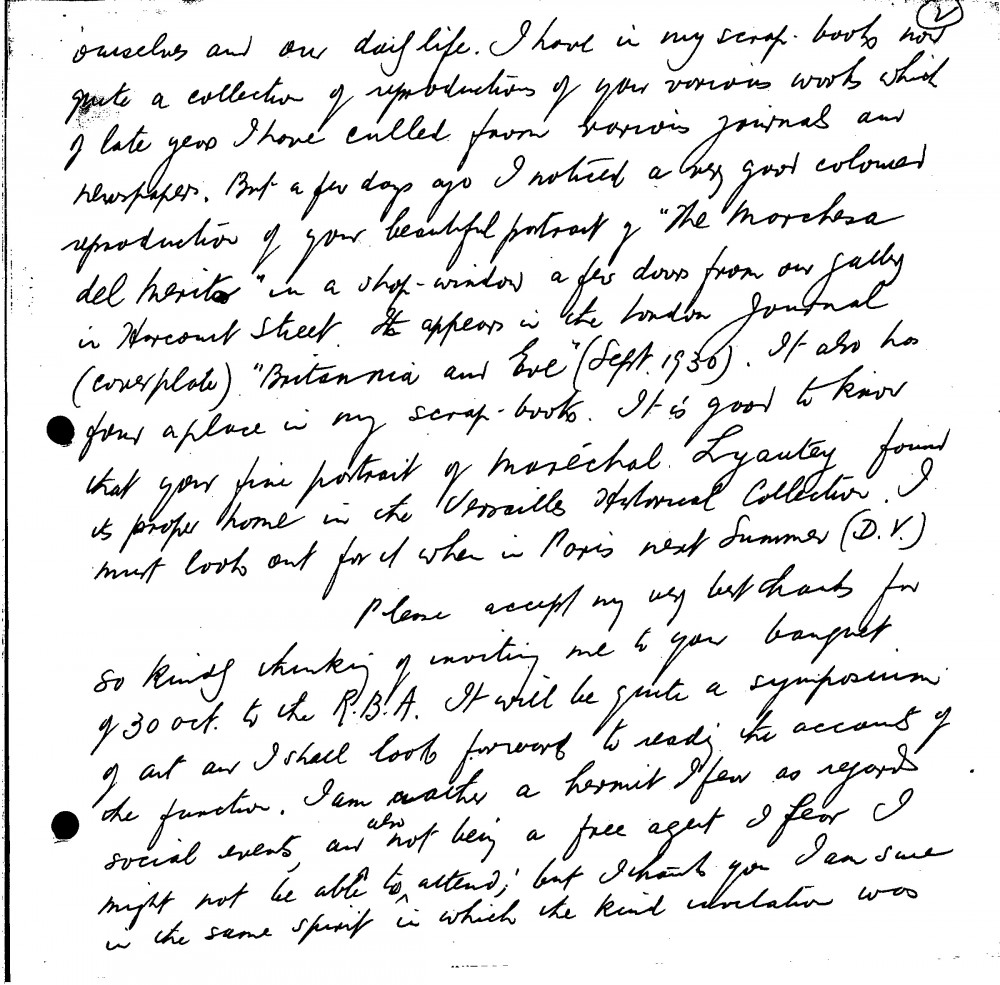 2
ourselves and our daily life. I have in my scrap-books now
quite a collection of reproductions of your various works which
of late years I have culled from various journals and
newspapers. But a few days ago I noticed a very good coloured
reproduction of your beautiful portrait of "The Marchesa
del Merito" in a shop-window a few doors from our gallery
in Harcourt Street. It appears in the London Journal
(coverplate) "Britannia and Eve" (Sept. 1930). It also has
found a place in my scrap-books. It is good to know
that your fine portrait of Maréchal Lyautey found
its proper home in the Versailles Historical Collection. I
must look out for it when in Paris next Summer (D.V.)
Please accept my very best thanks for
so kindly thinking of inviting me to your banquet
of 30 Oct. to the R.B.A. It will be quite a symposium
of art and I shall look forward to reading the account of
the function. I am rather a hermit I fear as regards
social events, and also not being a free agent I fear I
might not be able to attend; but I thank you I am sure
in the same spirit in which the kind invitation was